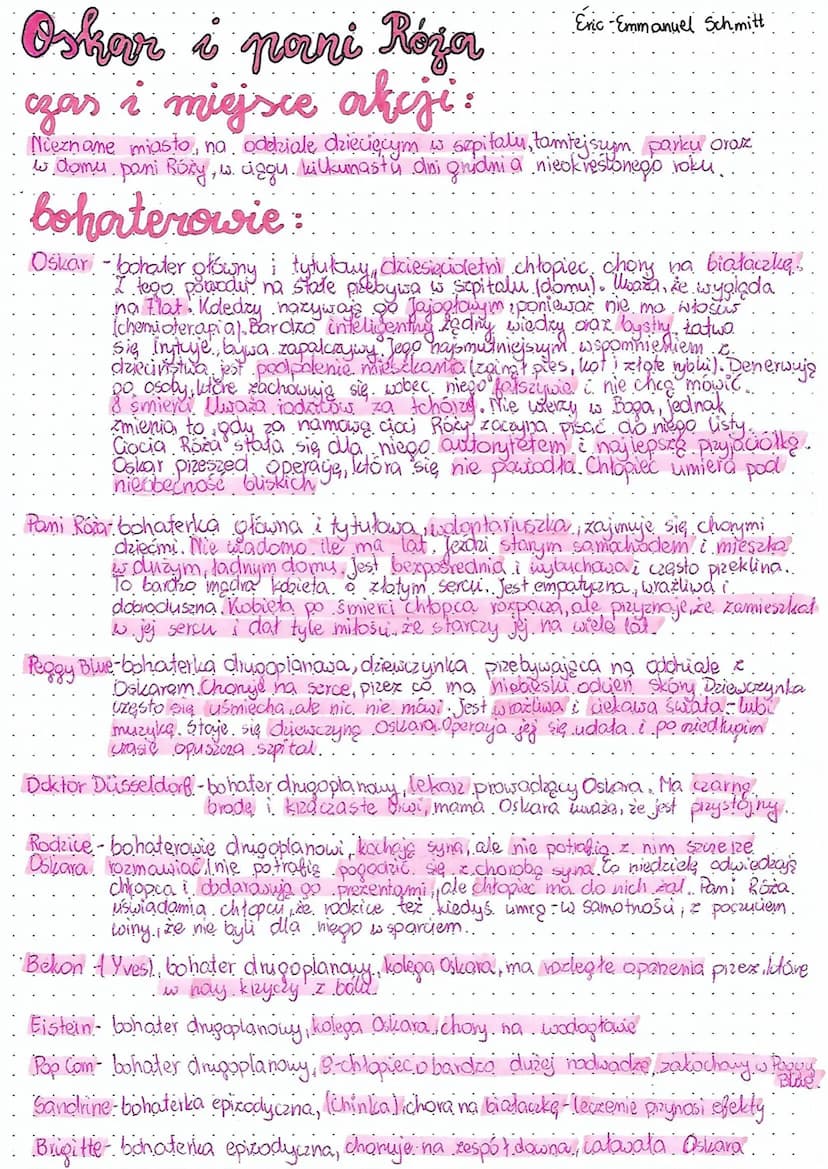 Oskar i pani Róża
Éric-Emmanuel Schmitt
czas i miejsce akcji:
Nieznane miasto, na oddziale dziecięcym w szpitalu, tamtejszym parku oraz
w domu pani Róży, w ciągu kilkunastu dni grudnia nieokreślonego roku.
bohaterowie:
Oskar - bohater główny i tytułowy, dziesięcioletni chłopiec chory na białaczkę.
Z tego powodu na stałe przebywa w szpitalu (domu). Uważa, że wygląda
na 7 lat. Koledzy nazywają go Jajogłowym, ponieważ nie ma włosów
(chemioterapia). Bardzo inteligentny, żądny wiedzy oraz bystry. Łatwo
się irytuje, bywa zapalczywy. Jego najsmutniejszym wspomnieniem z
dzieciństwa jest podpalenie mieszkania (zginął pies, kot i złote rybki). Denerwują
go osoby, które zachowują się wobec niego fałszywie i nie chcą mówić
o śmierci. Uważa rodziców za tchórzy. Nie wierzy w Boga, jednak
zmienia to, gdy za namową cioci Róży zaczyna pisać do niego listy.
Ciocia Róża stała się dla niego autorytetem i najlepszą przyjaciółką.
Oskar przeszedł operację, która się nie powiodła. Chłopiec umiera pod
nieobecność bliskich
Pani Róża - bohaterka główna i tytułowa, wolontariuszka, zajmuje się chorymi
dziećmi. Nie wiadomo ile ma lat. Jeździ starym samochodem i mieszka
w dużym, ładnym domu. Jest bezpośrednia i wybuchowa i często przeklina.
To bardzo mądra kobieta o złotym sercu. Jest empatyczna, wrażliwa i
dobroduszna. Kobieta po śmierci chłopca rozpacza, ale przyznaje, że zamieszkał
w jej sercu i dał tyle miłości, że starczy jej na wiele lat.
Peggy Blue - bohaterka drugoplanowa, dziewczynka przebywająca na oddziale z
Oskarem. Choruje na serce, przez co ma niebieski odcień skóry. Dziewczynka
często się uśmiecha, ale nic nie mówi. Jest wrażliwa i ciekawa świata - lubi
muzykę. Staje się dziewczyną Oskara. Operacja jej się udała i po niedługim
czasie opuszcza szpital.
Doktor Düsseldorf - bohater drugoplanowy, lekarz prowadzący Oskara. Ma czarną
brodę i krzaczaste brwi, mama Oskara uważa, że jest przystojny.
Rodzice - bohaterowie drugoplanowi, kochają syna, ale nie potrafią z nim szczerze
Oskara rozmawiać i nie potrafią pogodzić się z chorobą syna. Co niedzielę odwiedzają
chłopca i obdarowują go prezentami, ale chłopiec ma do nich żal. Pani Róża
uświadamia chłopcu, że rodzice też kiedyś umrą - w samotności, z poczuciem
winy, że nie byli dla niego wsparciem.
Bekon - (Yves), bohater drugoplanowy, kolega Oskara, ma rozległe oparzenia przez które
w nocy krzyczy z bólu
Eistein - bohater drugoplanowy, kolega Oskara, chory na wodogłowie
Pop Corn - bohater drugoplanowy, 9-chłopiec o bardzo dużej nadwadze, zakochany w Peggy
Blue
Sandrine - bohaterka epizodyczna, (Chinka), chora na białaczkę - leczenie przynosi efekty
Brigitte - bohaterka epizodyczna, choruje na zespół downa, całowała Oskara